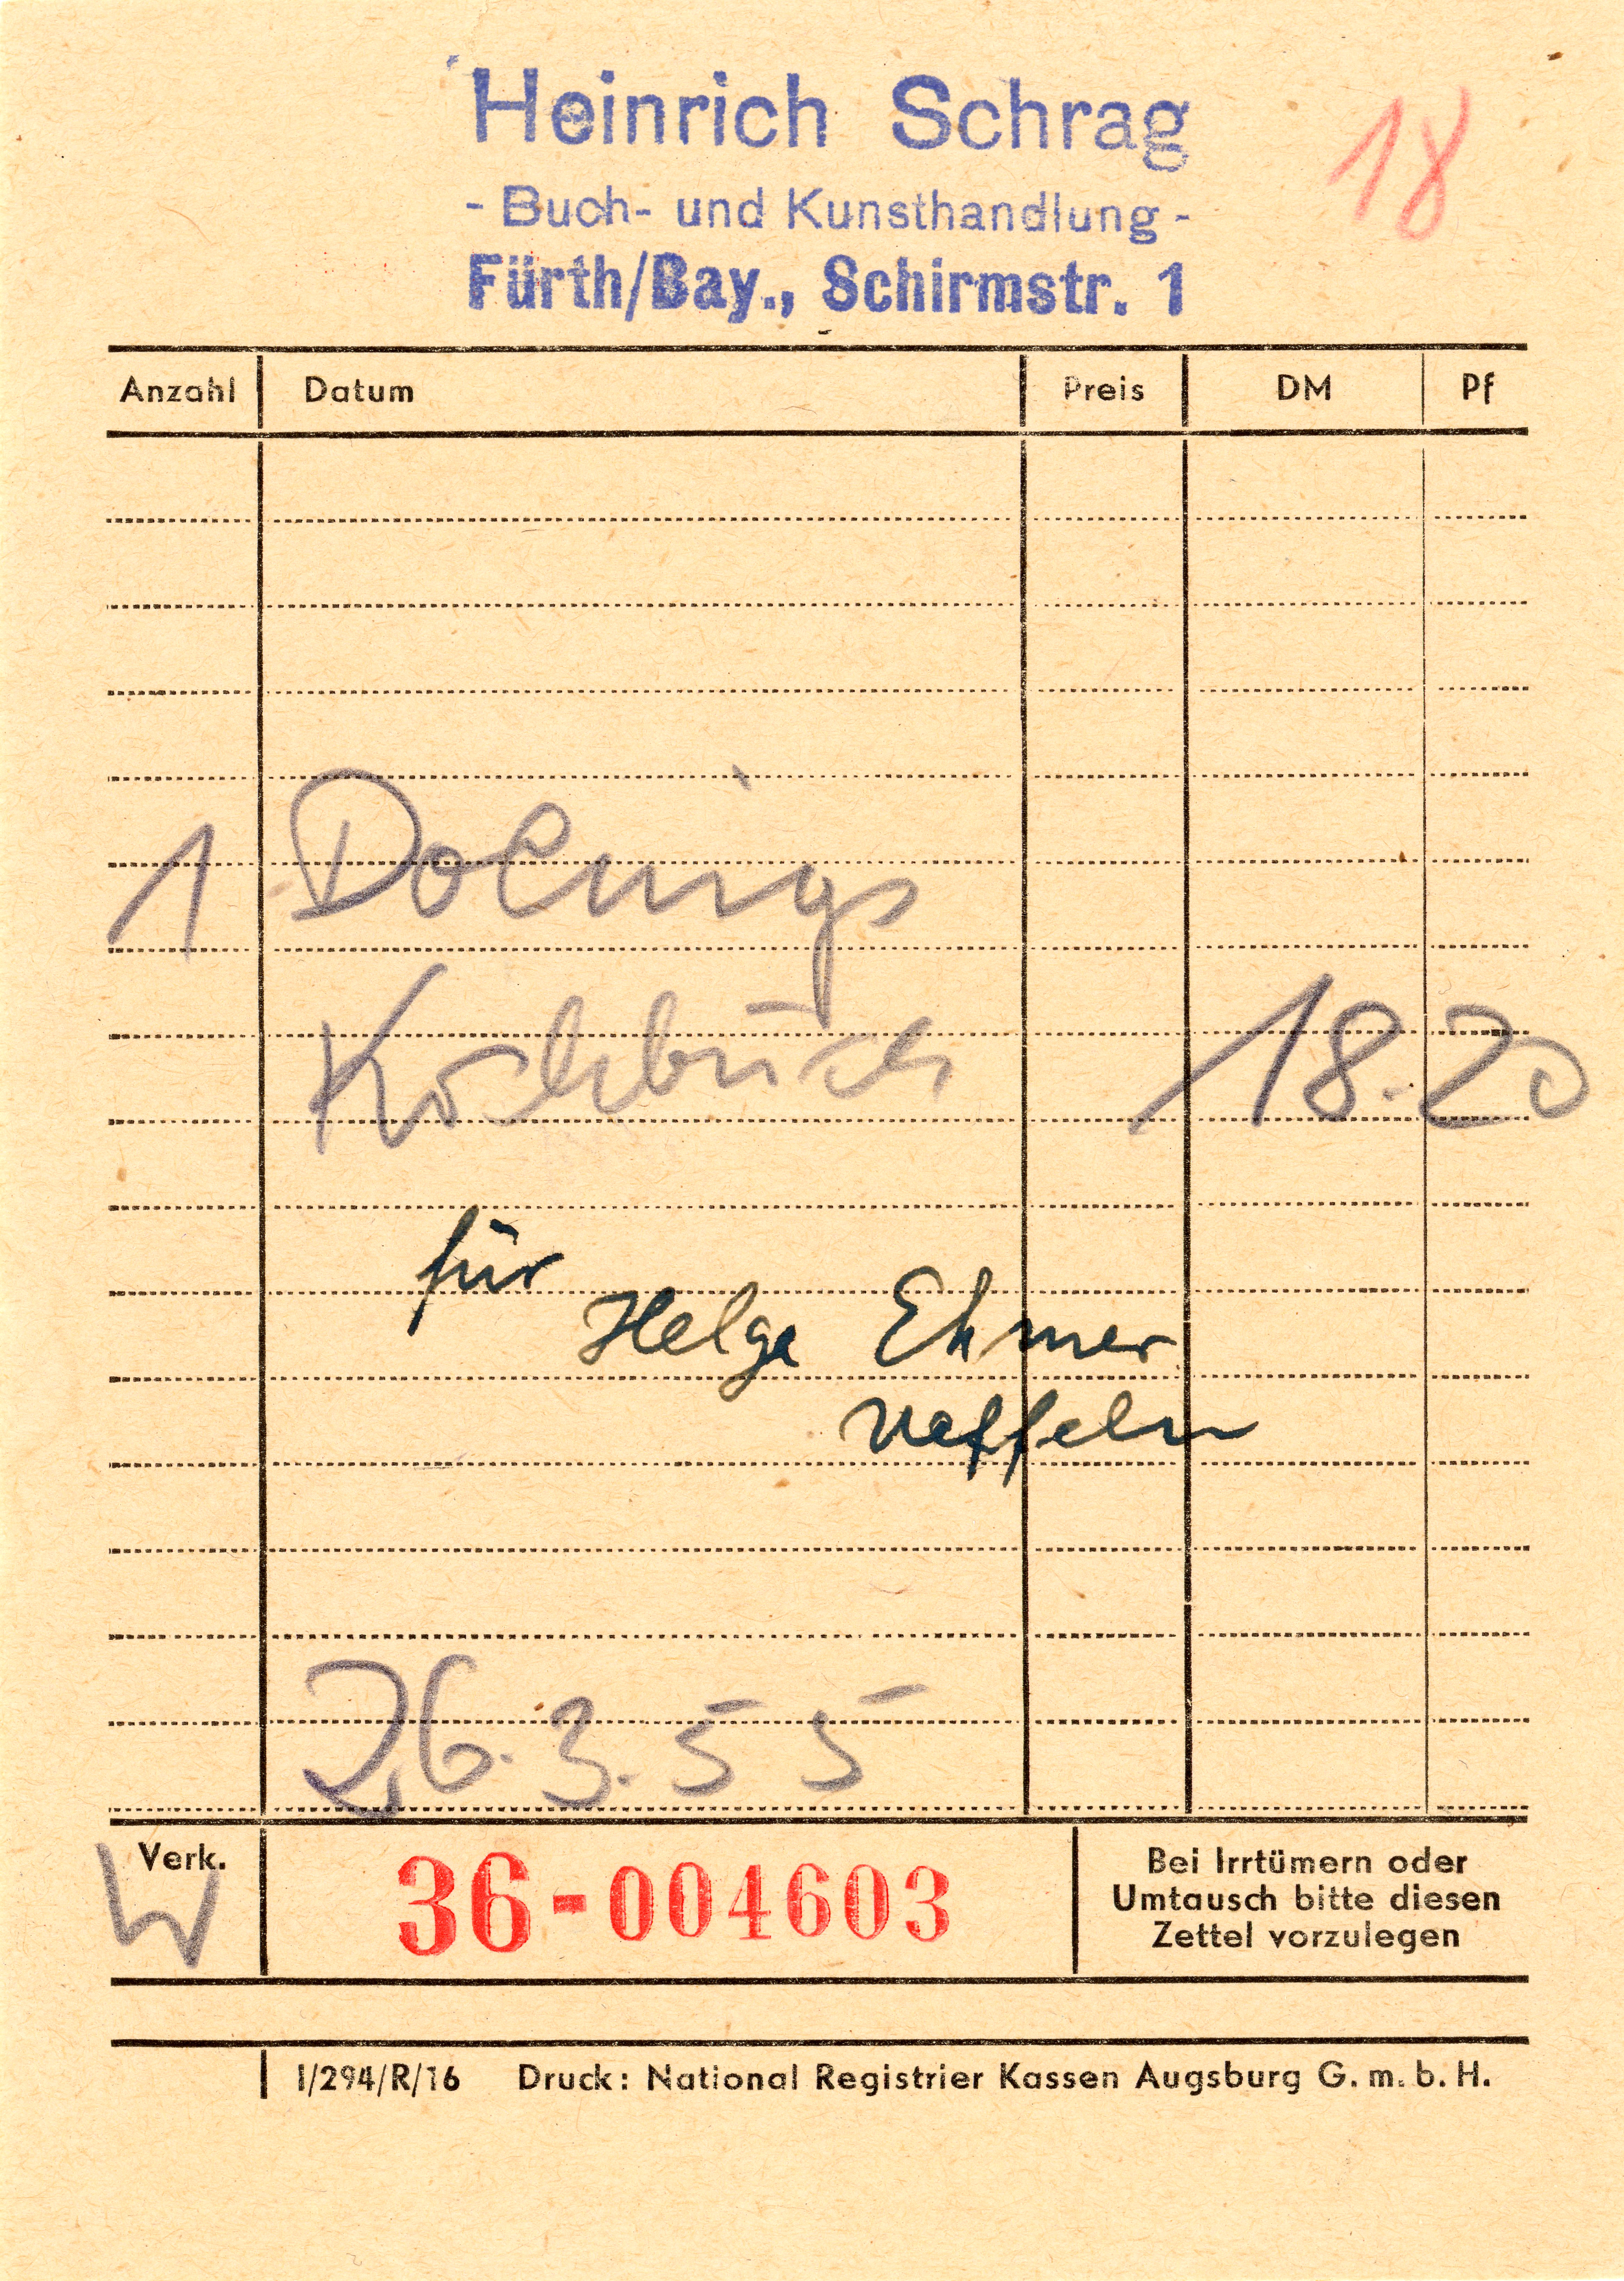 Heinrich Schrag
18
- Buch- und Kunsthandlung -
Fürth/Bay., Schirmstr. 1
Anzahl Datum Preis DM Pf
1
Kochbuch 18.20
für
Helga Ehmer
26.3.55
Verk.
W
36-004603
Bei Irrtümern oder
Umtausch bitte diesen
Zettel vorzulegen
I/294/R/16 Druck: National Registrier Kassen Augsburg G. m. b. H.